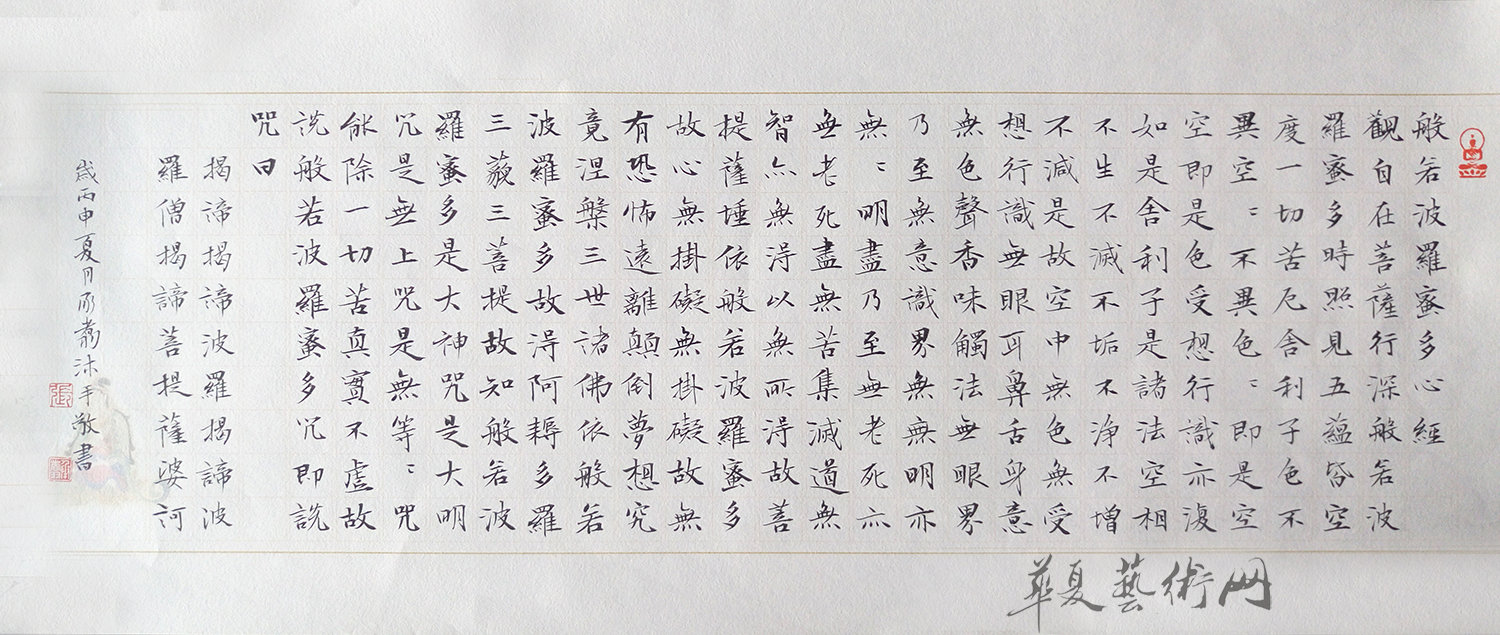 般若波羅蜜多心經
觀自在菩薩行深般若波
羅蜜多時照見五蘊皆空
度一切苦厄舍利子色不
異空〻不異色〻即是空
空即是色受想行識亦復
如是舍利子是諸法空相
不生不滅不垢不淨不增
不減是故空中無色無受
想行識無眼耳鼻舌身意
無色聲香味觸法無眼界
乃至無意識界無無明亦
無〻明盡乃至無老死亦
無老死盡無苦集滅道無
智亦無得以無所得故菩
提薩埵依般若波羅蜜多
故心無掛礙無掛礙故無
有恐怖遠離顛倒夢想究
竟涅槃三世諸佛依般若
波羅蜜多故得阿耨多羅
三藐三菩提故知般若波
羅蜜多是大神咒是大明
咒是無上咒是無等〻咒
能除一切苦真實不虛故
說般若波羅蜜多咒即說
咒曰
揭諦揭諦波羅揭諦波
羅僧揭諦菩提薩婆訶
歲丙申夏月沐手敬書
華夏藝術网